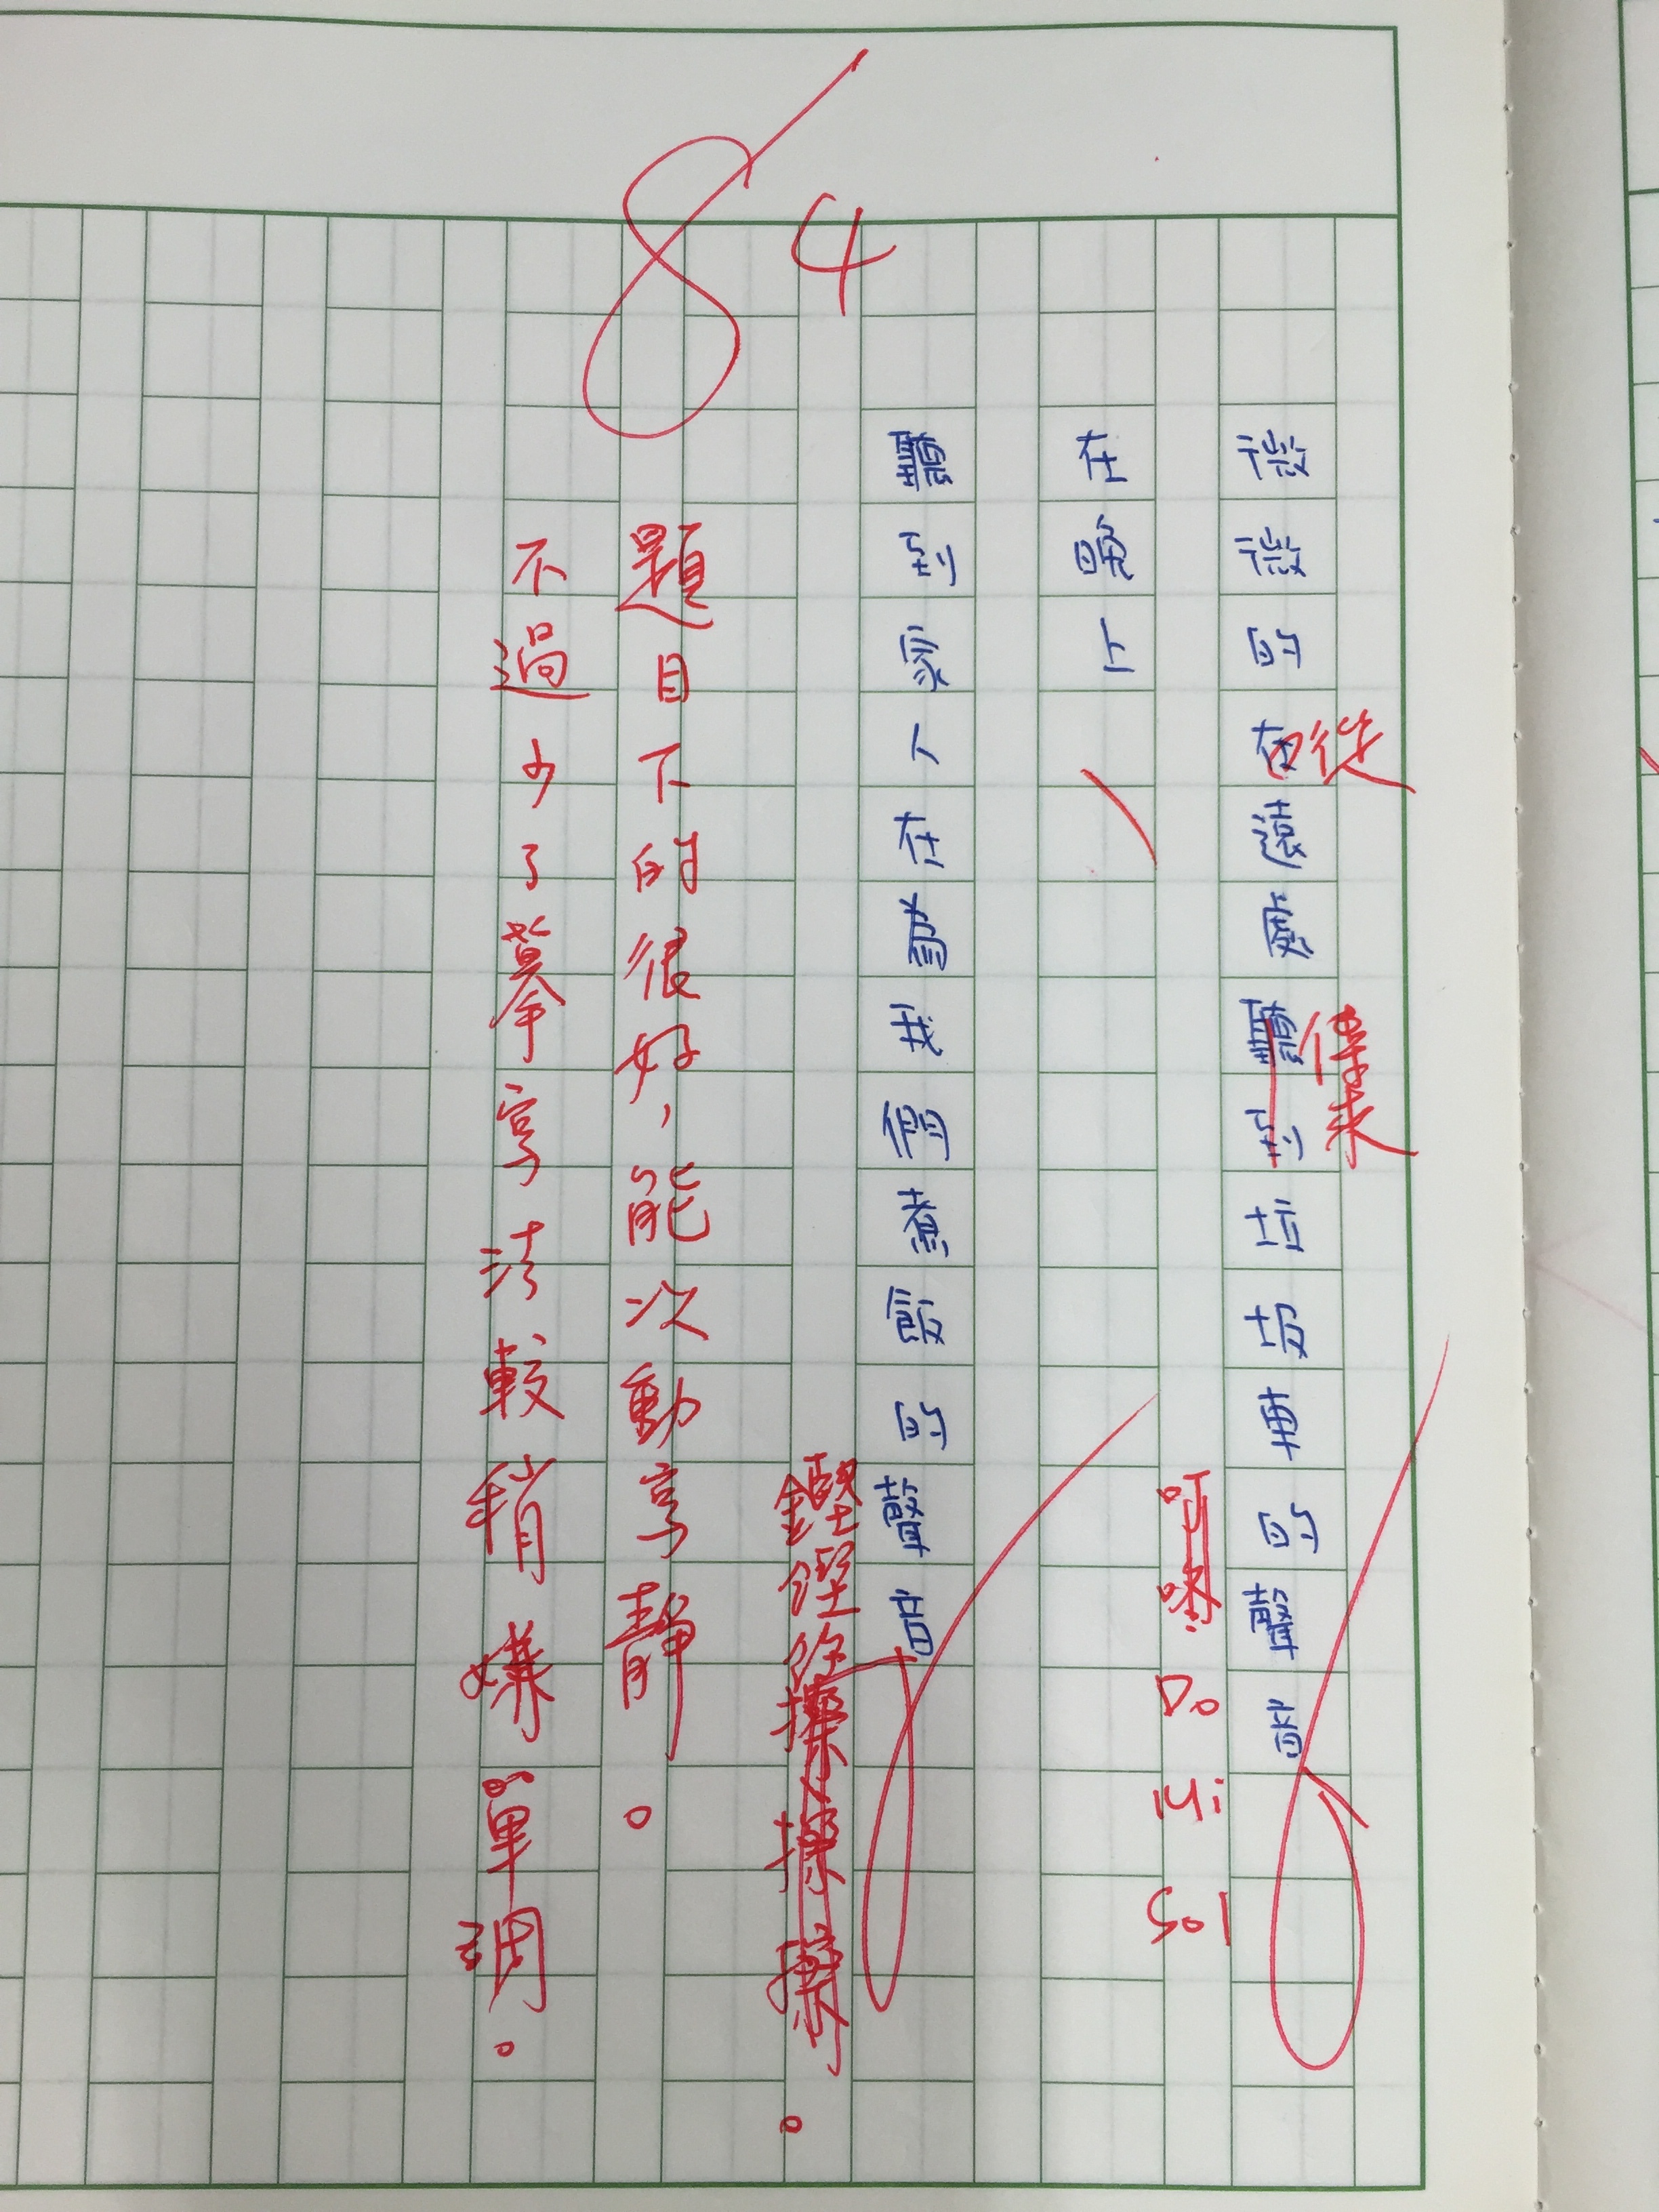 84
從
傳來
微微的在遠處聽到垃圾車的聲音
Do Mi Sol
在晚上
聽到家人在為我們煮飯的聲音
鏗鏗鏘鏘
。
題目下的很好,能次動寫靜。
不過少了摹寫法較稍嫌單調。